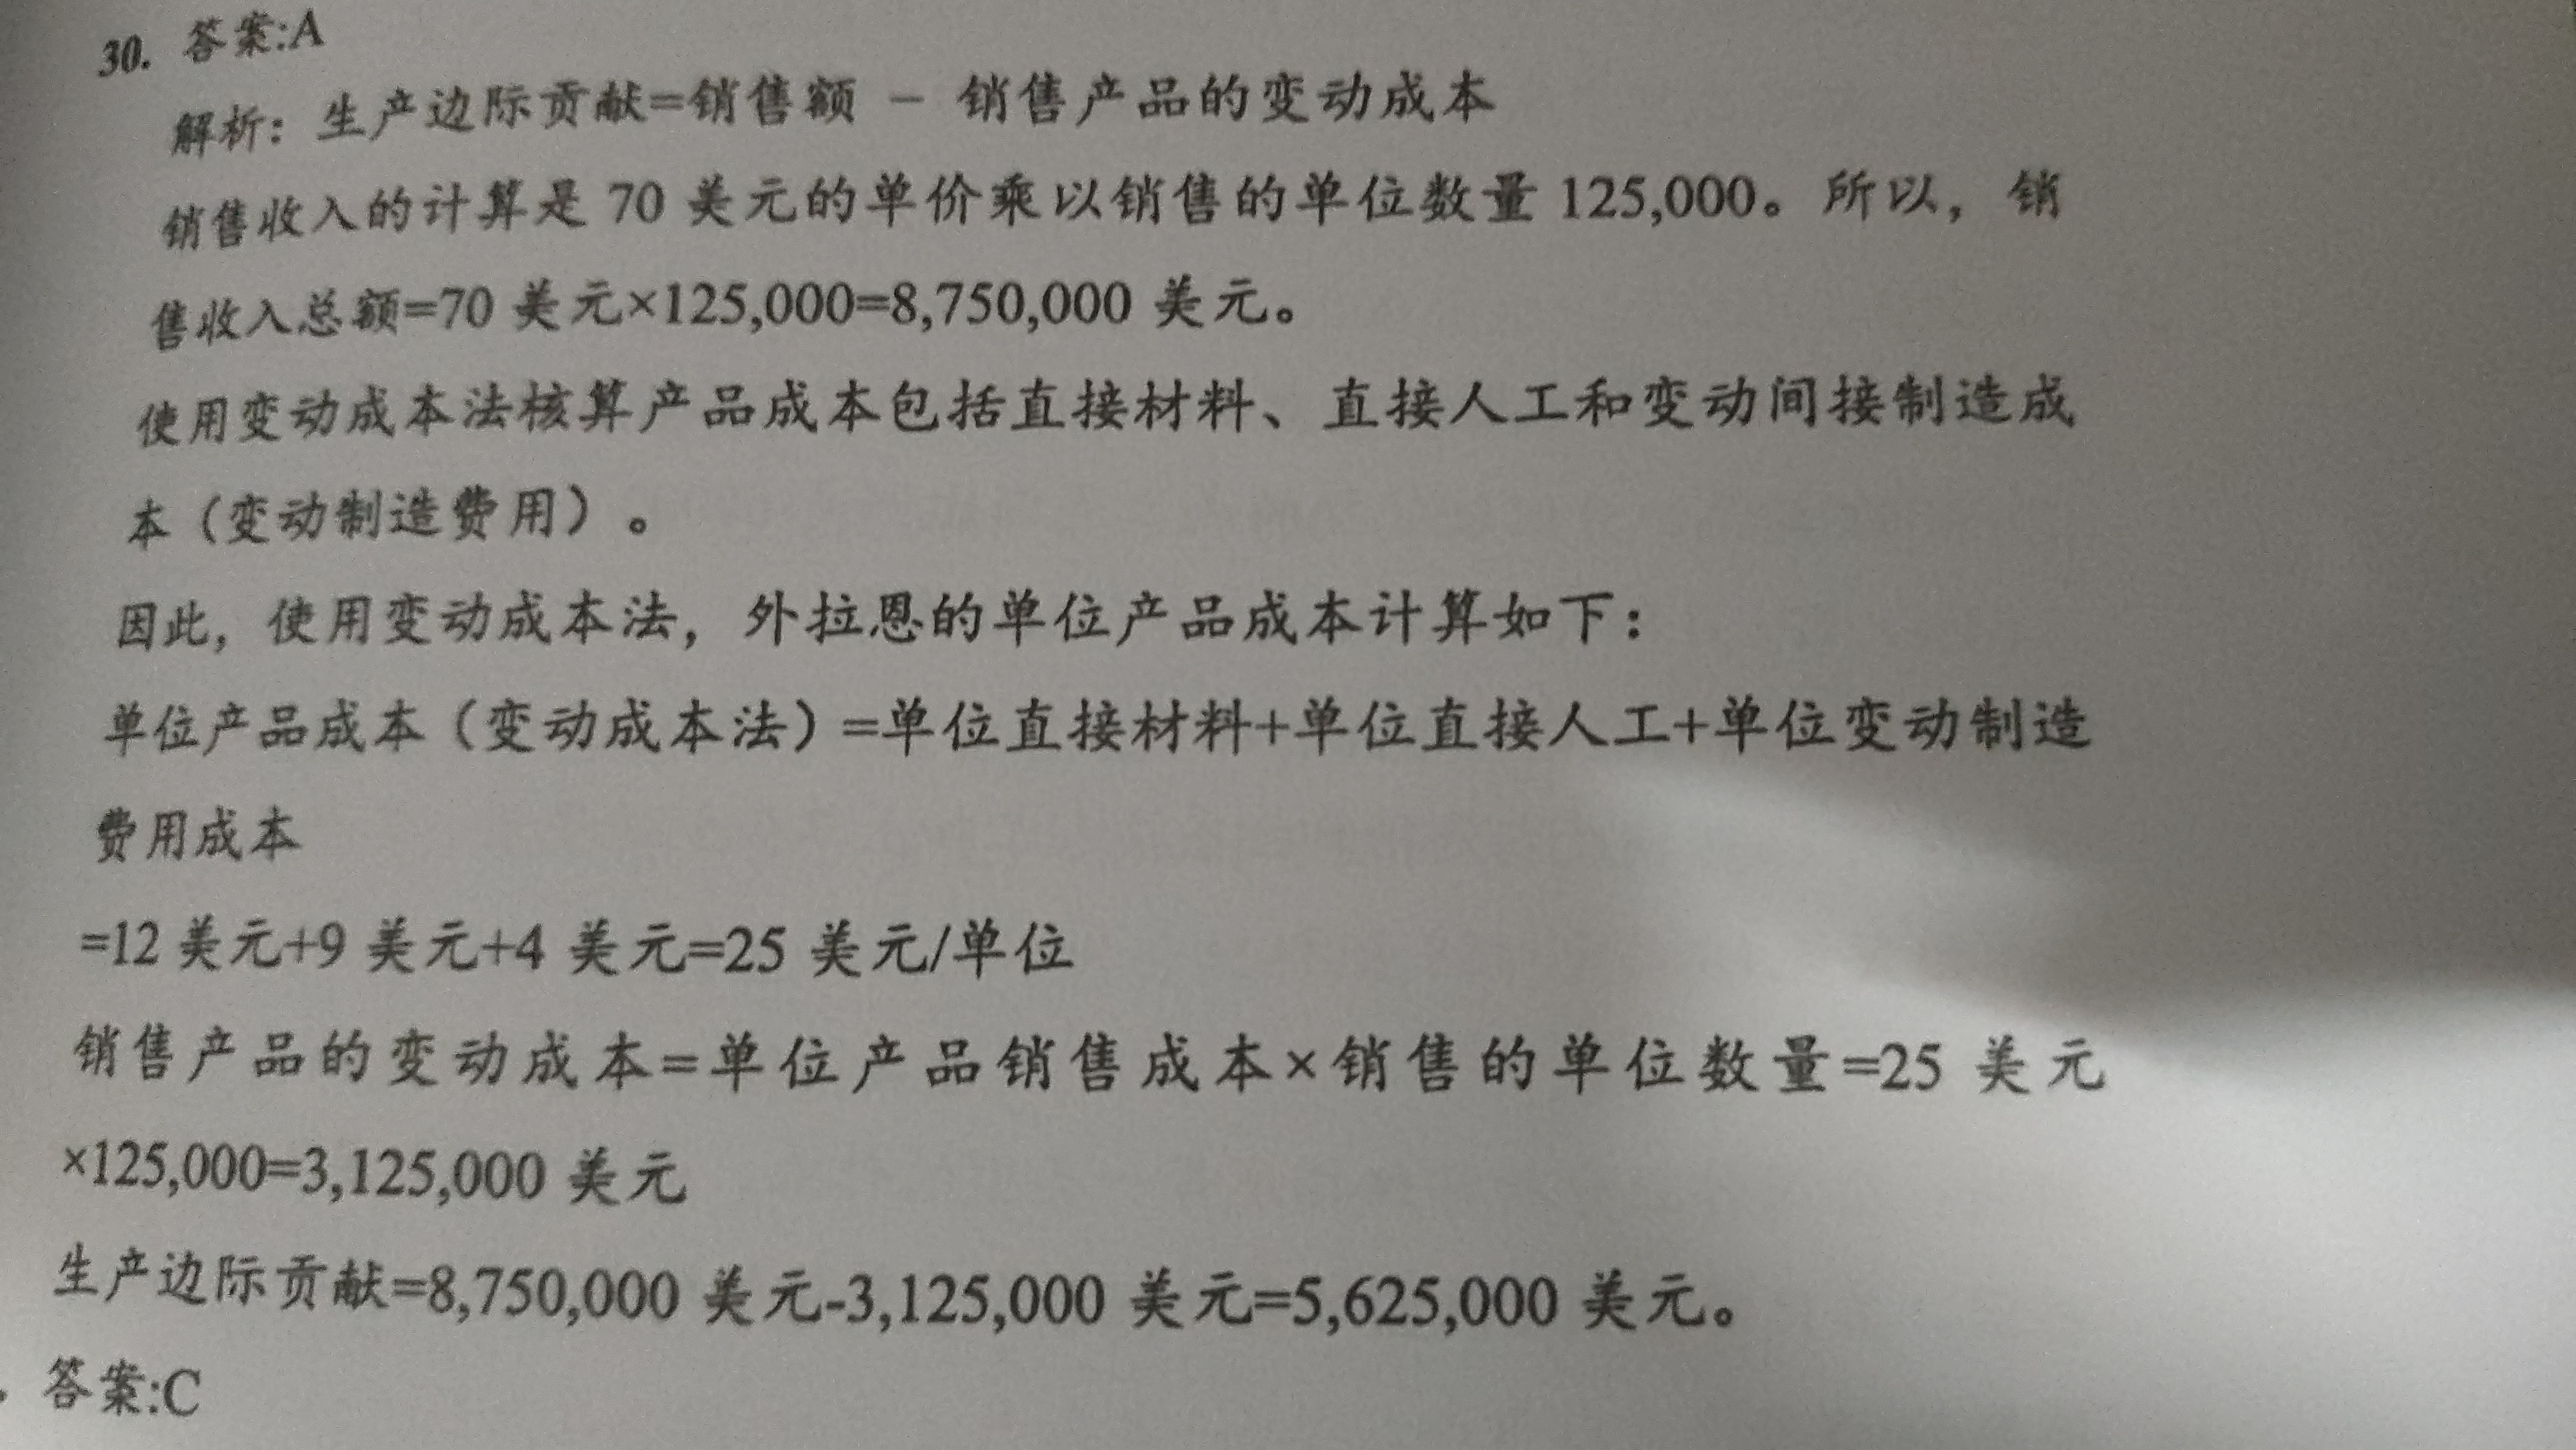 30. 答案:A
解析：生产边际贡献=销售额 － 销售产品的变动成本
销售收入的计算是 70 美元的单价乘以销售的单位数量 125,000。所以，销
售收入总额=70 美元×125,000=8,750,000 美元。
使用变动成本法核算产品成本包括直接材料、直接人工和变动间接制造成
本（变动制造费用）。
因此，使用变动成本法，外拉恩的单位产品成本计算如下：
单位产品成本（变动成本法）=单位直接材料+单位直接人工+单位变动制造
费用成本
=12 美元+9 美元+4 美元=25 美元/单位
销售产品的变动成本=单位产品销售成本×销售的单位数量=25 美元
×125,000=3,125,000 美元
生产边际贡献=8,750,000 美元-3,125,000 美元=5,625,000 美元。
. 答案:C